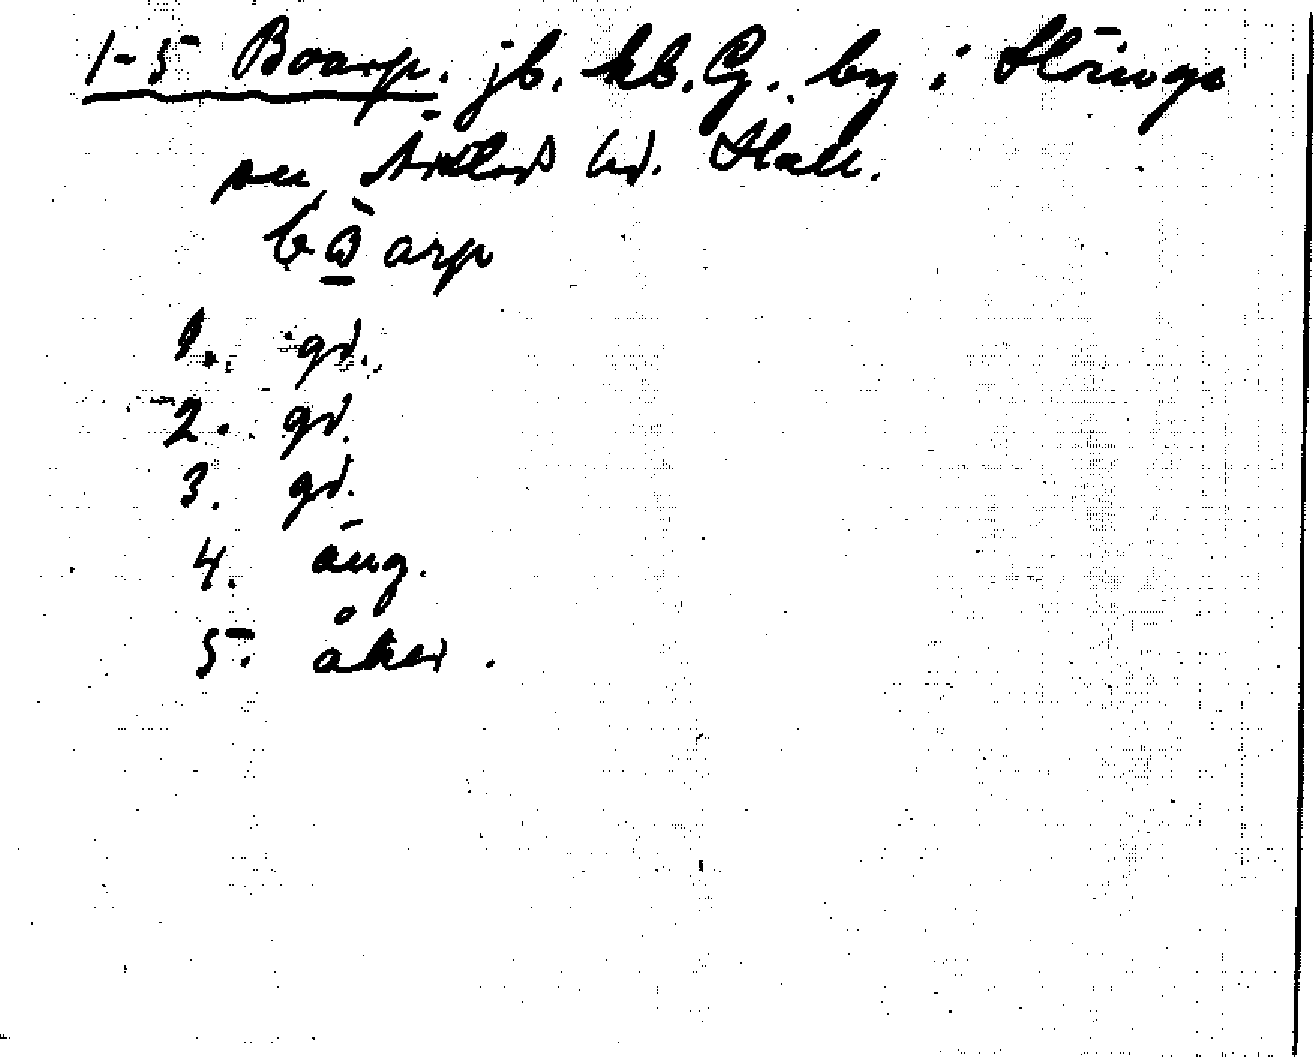 1-5 Boarp. jb. kb. G. by i Slöinge
sn, Årstad hd. Hall.
bo͟arp
1. gd.
2. gd.
3. gd.
4. äng.
5. åker.